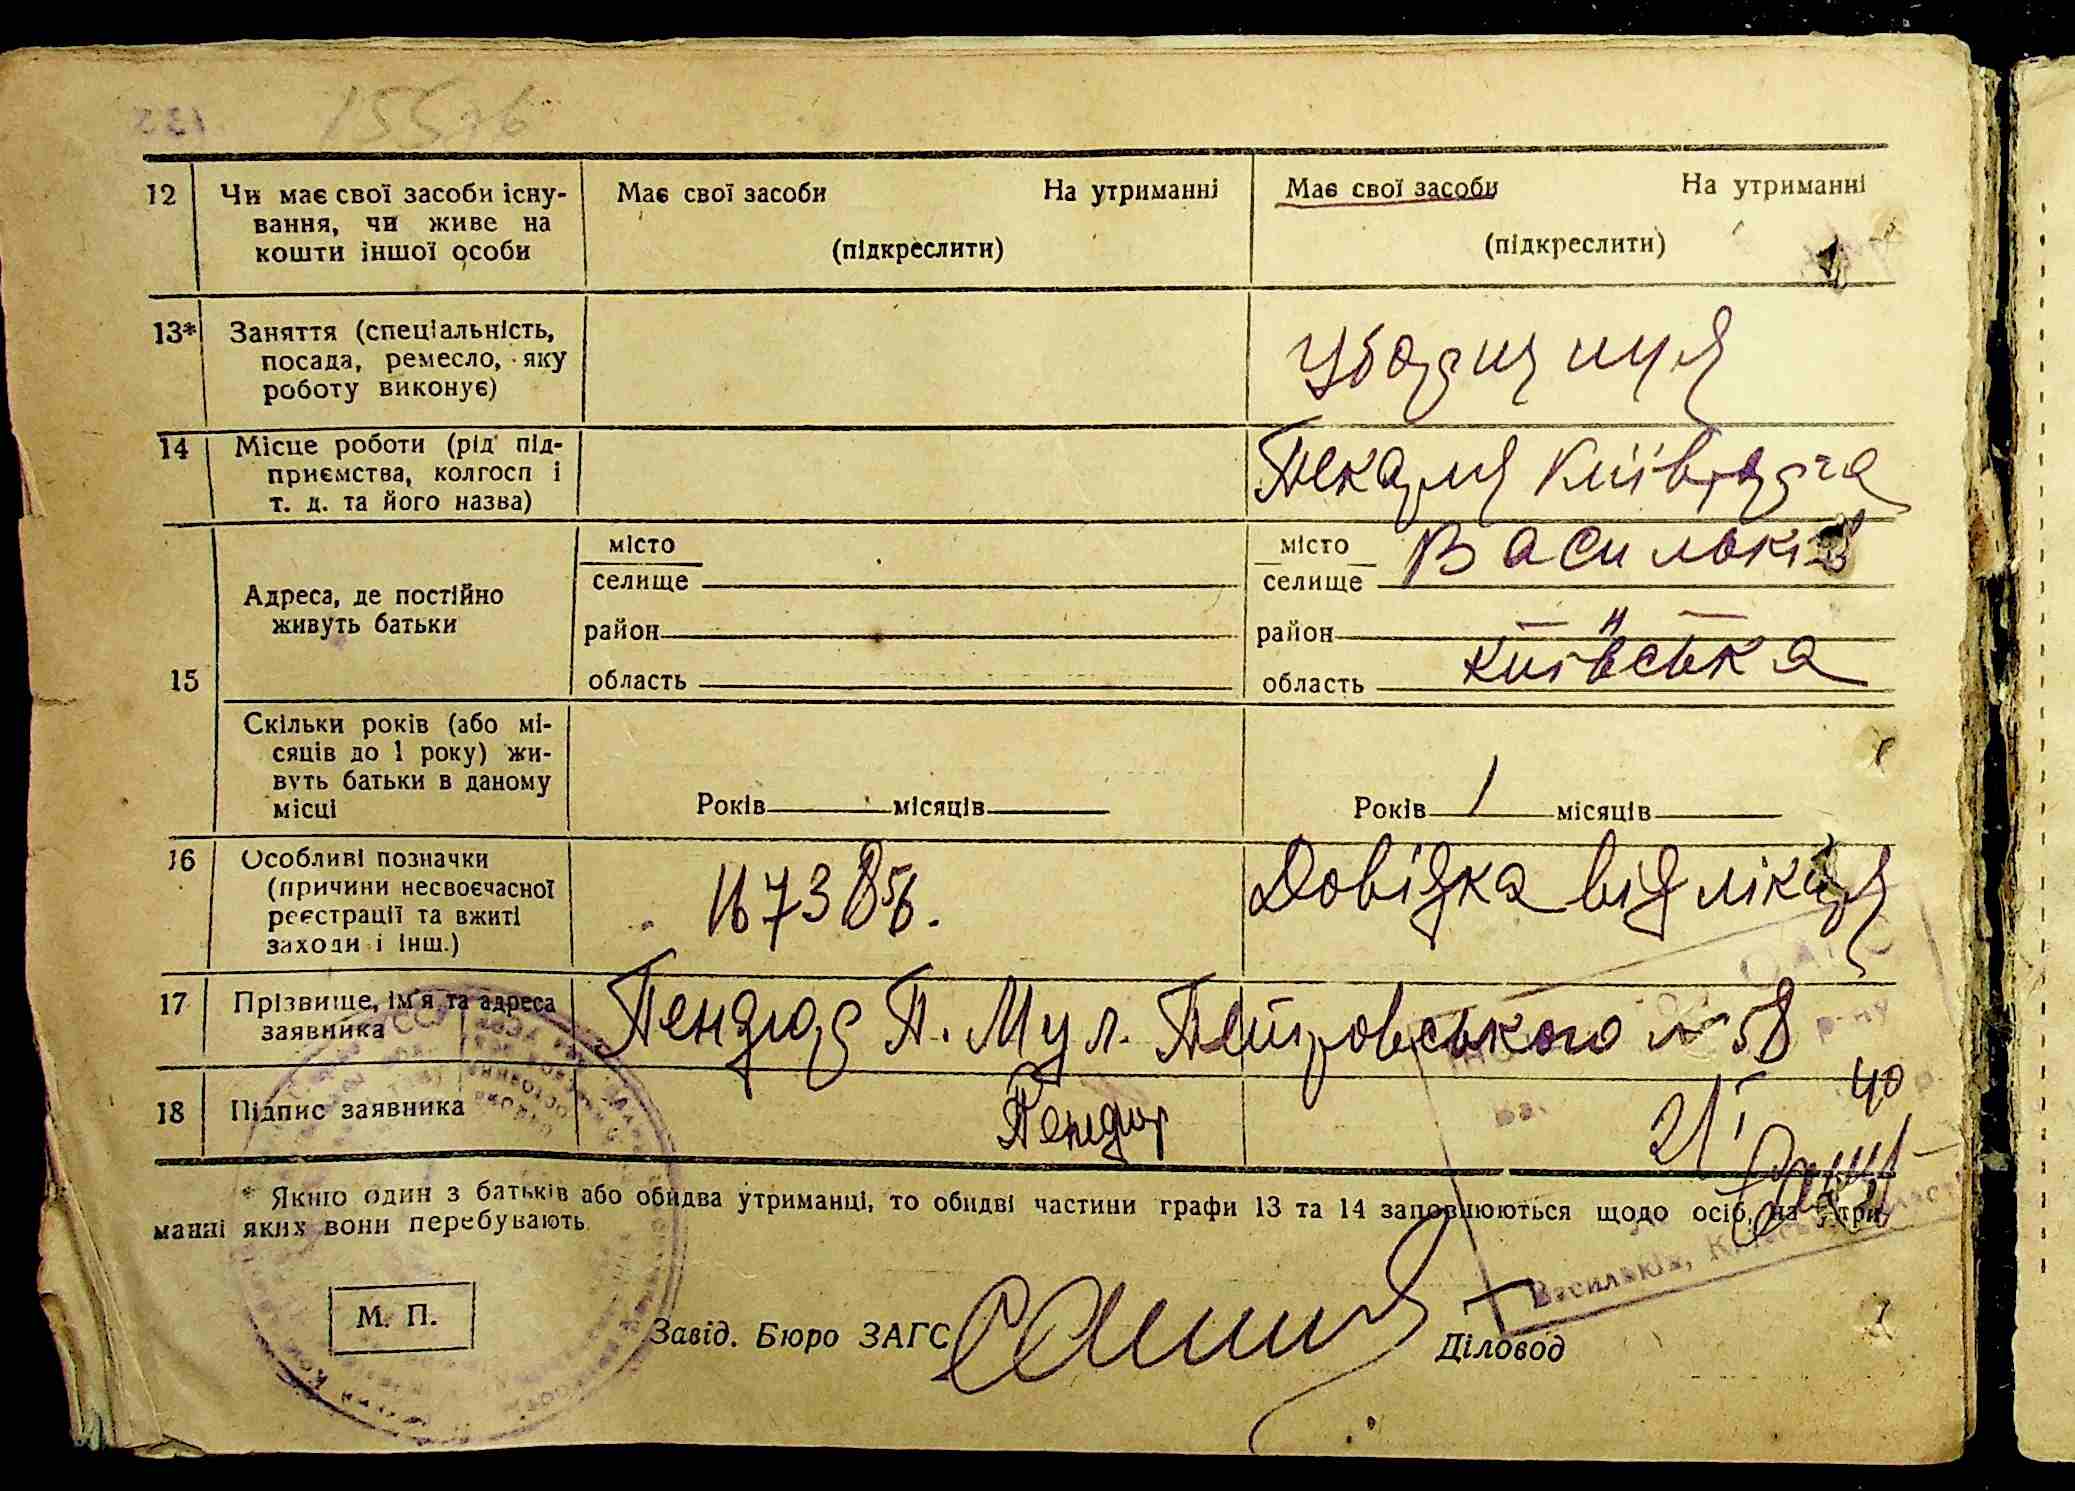 155зв
12 Чи має свої засоби існу-
вання, чи живе на
кошти іншої особи
Має свої засоби На утриманні
(підкреслити)
Має свої засоби На утриманні
(підкреслити)
13* Заняття (спеціальність,
посада, ремесло, яку
роботу виконує)
14 Місце роботи (рід під-
приємства, колгосп і
т. д. та його назва)
Пекарня
15 Адреса, де постійно
живуть батьки
місто
селище
район
область
місто Васильків
селище
район — " —
область київська
Скільки років (або мі-
сяців до 1 року) жи-
вуть батьки в даному
місці
Років місяців
Років 1 місяців
16 Особливі позначки
(причини несвоєчасної
реєстрації та вжиті
заходи і інш.)
Довідка від лікаря
17 Прізвище, ім'я та адреса
заявника
П. М ул. Петровського № 58
18 Підпис заявника
21 I 40
* Якщо один з батьків або обидва утриманці, то обидві частини графи 13 та 14 заповнюються щодо осіб, на утри-
манні яких вони перебувають.
М. П.
Завід. Бюро ЗАГС
Діловод
Васильків,